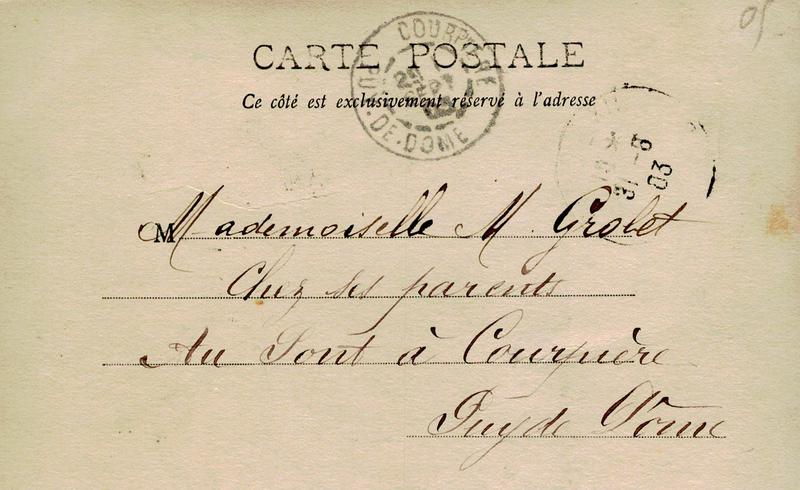 05
CARTE POSTALE
Ce côté est exclusivement réservé à l'adresse
COURPIÈRE
PUY-DE-DOME
31 -8
03
Mademoiselle M. Grolet
Chez ses parents
Au Pont à Courpière
Puy de Dôme